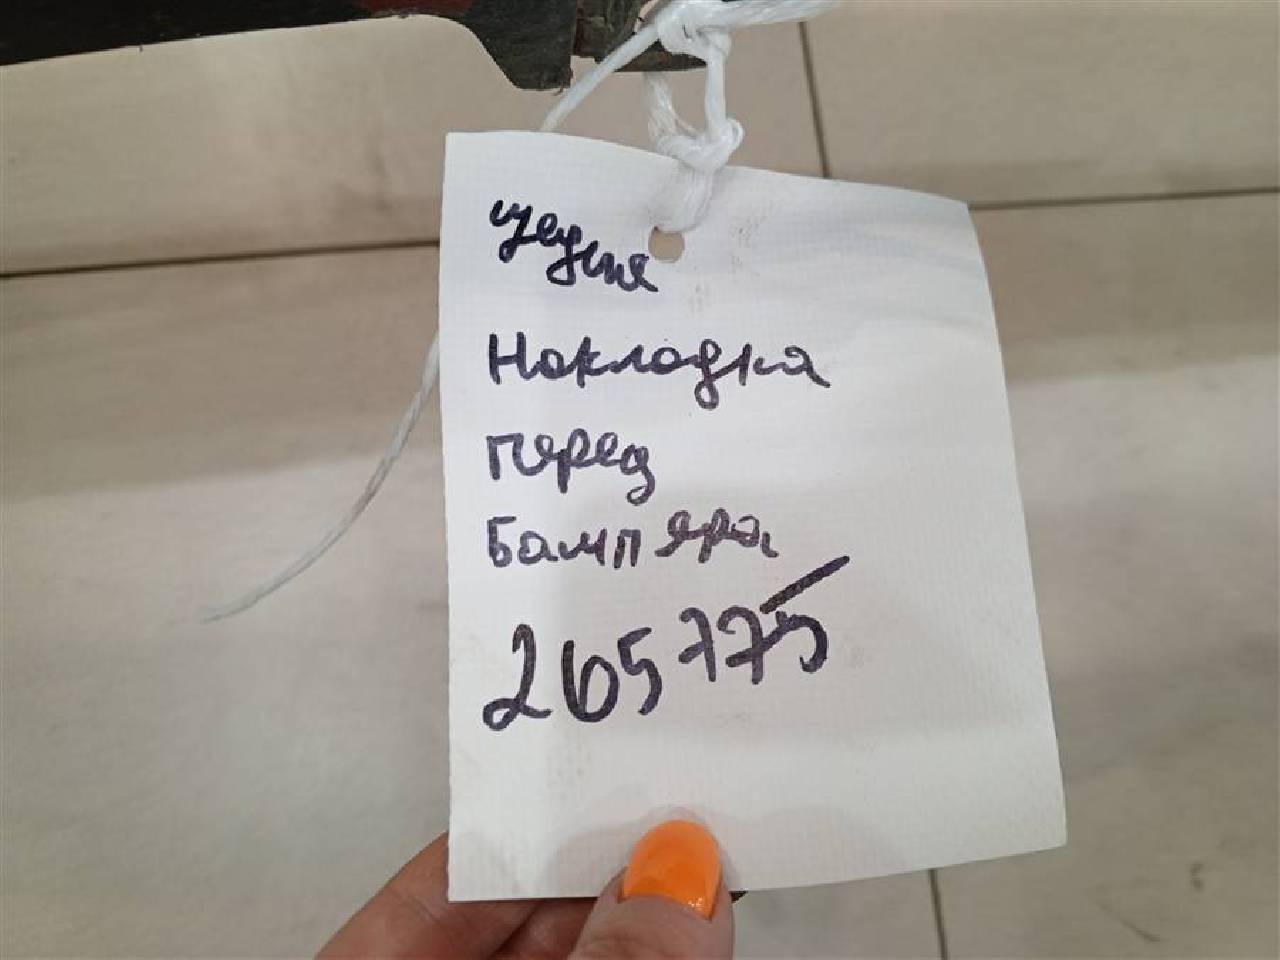 Накладка
перед
Бампера
265775